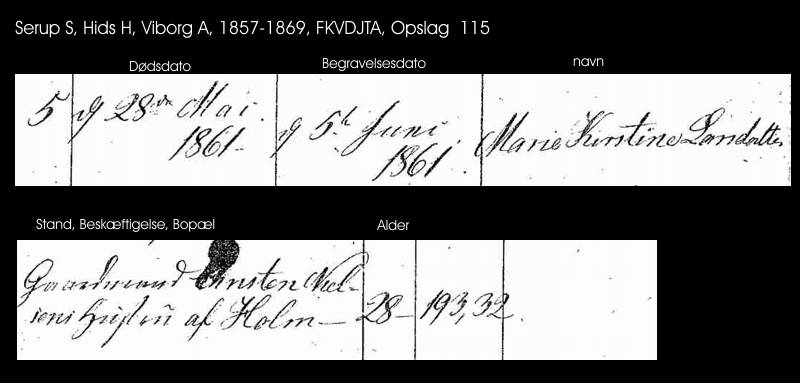 Serup S, Hids H, Viborg A, 1857-1869, FKVDJTA, Opslag 115
Dødsdato Begravelsesdato navn
5 28de Mai 5te Juni Marie Kirstine
1861 1861
Stand, Beskæftigelse, Bopæl Alder
Gaardmand Christen Niel-
sens Hustru af Holm 28 193,32